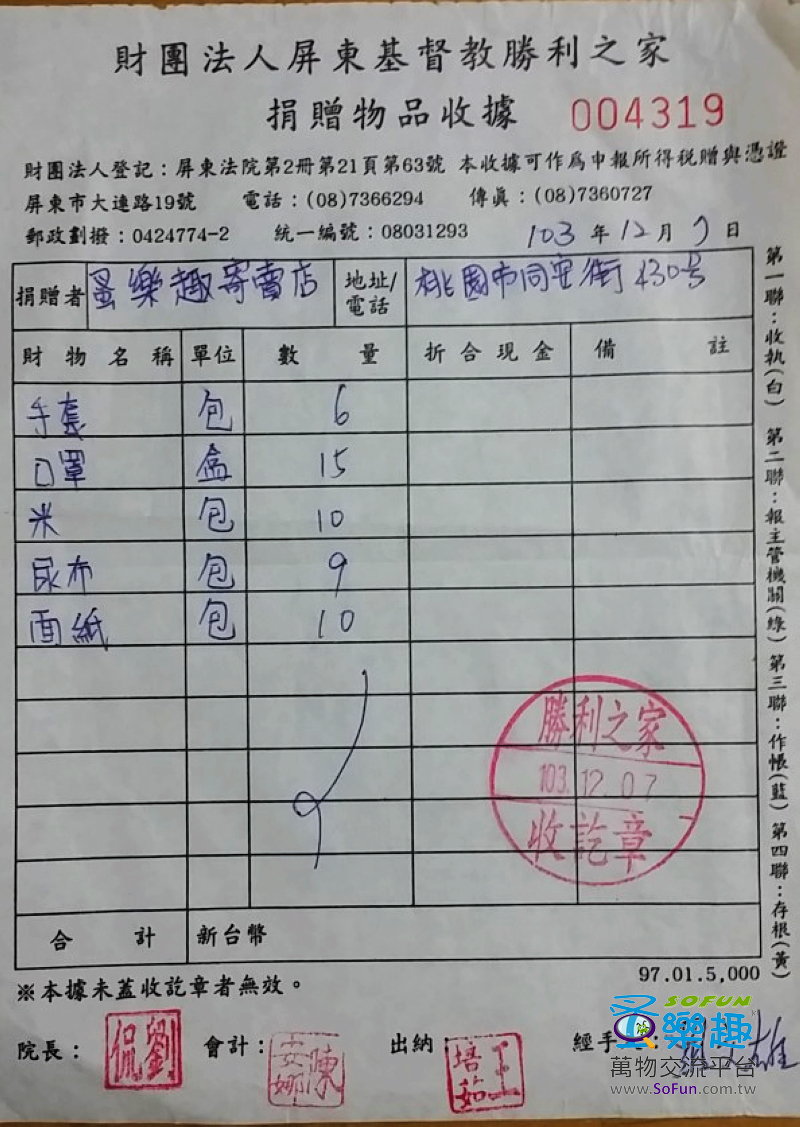 財團法人屏東基督教勝利之家
捐贈物品收據 004319
財團法人登記：屏東法院第2冊第21頁第63號 本收據可作為申報所得稅贈與憑證
屏東市大連路19號 電話：(08)7366294 傳真：(08)7360727
郵政劃撥：0424774-2 統一編號：08031293 103 年 12 月 7 日
捐贈者 蚤樂趣寄賣店 地址/電話 桃園市同安街430号
財物名稱 單位 數量 折合現金 備註
手套 包 6
口罩 盒 15
米 包 10
尿布 包 9
面紙 包 10
勝利之家
103.12.07
收訖章
合計 新台幣
第一聯：收執(白) 第二聯：報主管機關(綠) 第三聯：作帳(藍) 第四聯：存根(黃)
97.01.5,000
※本據未蓋收訖章者無效。
院長： 劉侃 會計： 陳安娜 出納 王培茹 經手
SOFUN
蚤樂趣
萬物交流平台
www.SoFun.com.tw